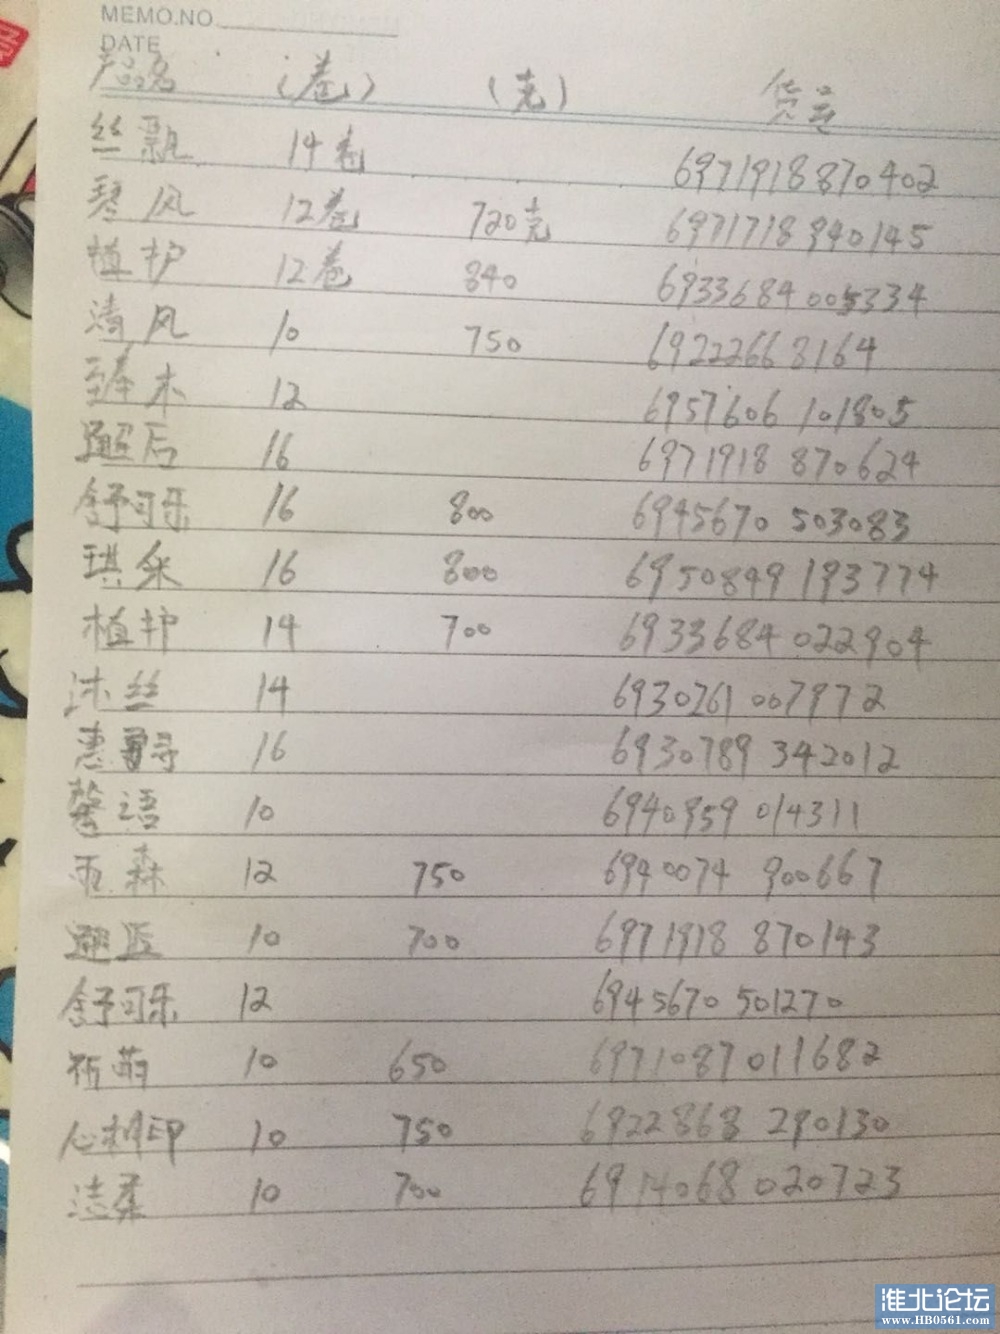 MEMO.NO
DATE
产品名 （卷） （克） 货号
丝飘 14卷 6971918870402
琴风 12卷 720克 6971718940145
植护 12卷 840 6933684005334
清风 10 750 692226681 64
臻木 12 6957606 101805
邂后 16 6971918 870624
舒可乐 16 800 6945670 503083
琪采 16 800 6950849 193774
植护 14 700 6933684 022904
沐丝 14 6930261 007972
惠尋 16 6930789 342012
馨语 10 6940959 014311
雨森 12 750 6940074 900667
邂 10 700 6971918 870143
舒可乐 12 6945670 501270
祈萌 10 650 6971087011682
心相印 10 750 6922868 290130
洁柔 10 700 6914068 020723
淮北论坛
www.HB0561.com